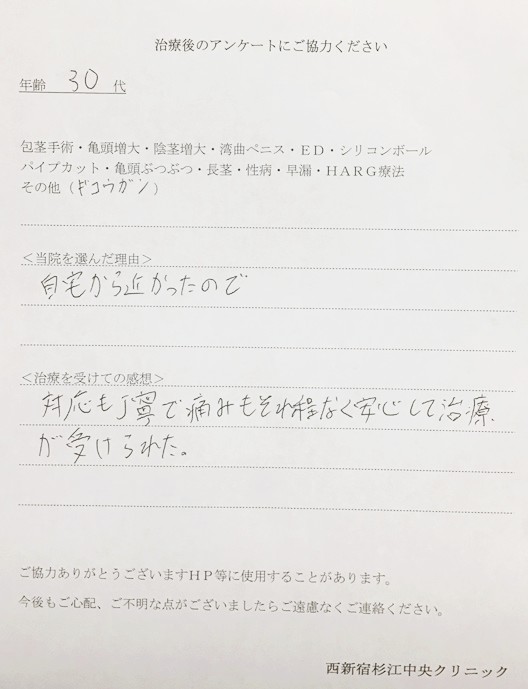 治療後のアンケートにご協力ください
年齢 30 代
包茎手術・亀頭増大・陰茎増大・湾曲ペニス・ＥＤ・シリコンボール
パイプカット・亀頭ぶつぶつ・長茎・性病・早漏・ＨＡＲＧ療法
その他（ギコウガン）
＜当院を選んだ理由＞
自宅から近かったので
＜治療を受けての感想＞
対応も丁寧で痛みもそれ程なく安心して治療
が受けられた。
ご協力ありがとうございますＨＰ等に使用することがあります。
今後もご心配、ご不明な点がございましたらご遠慮なくご連絡ください。
西新宿杉江中央クリニック